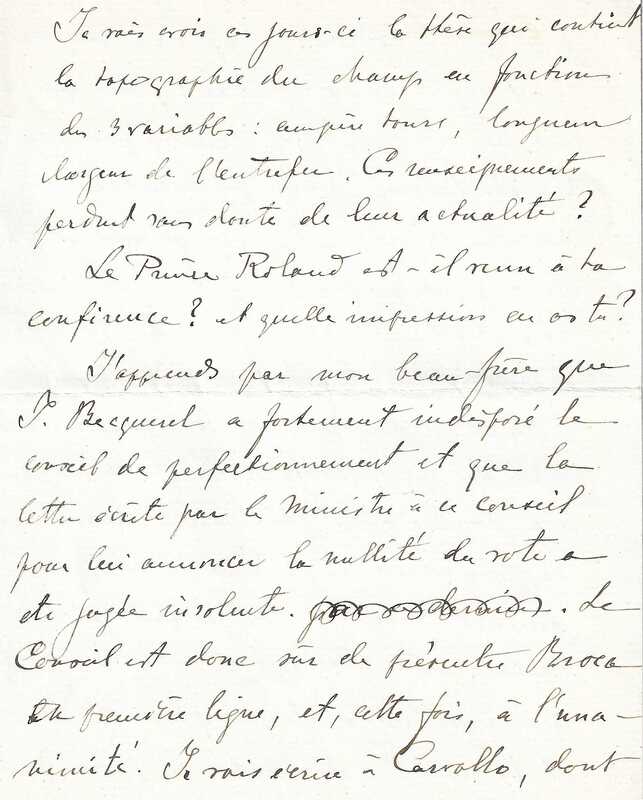 Je vais avoir ces jours-ci la thèse qui contient
la topographie du champ en fonction
des 3 variables : ampère tours, longueur
largeur de l'entrefer. Ces renseignements
perdent sans doute de leur actualité ?
Le Prince Roland est-il venu à ta
conférence ? et quelle impression en as tu ?
J'apprends par mon beau-frère que
J. Becquerel a fortement indisposé le
conseil de perfectionnement et que la
lettre écrite par le Ministre à ce conseil
pour lui annoncer la nullité du vote a
été jugée insolente. . Le
Conseil est donc sûr de présenter Broca
en première ligne, et, cette fois, à l'una-
nimité. Je vais écrire à Carvallo, dont